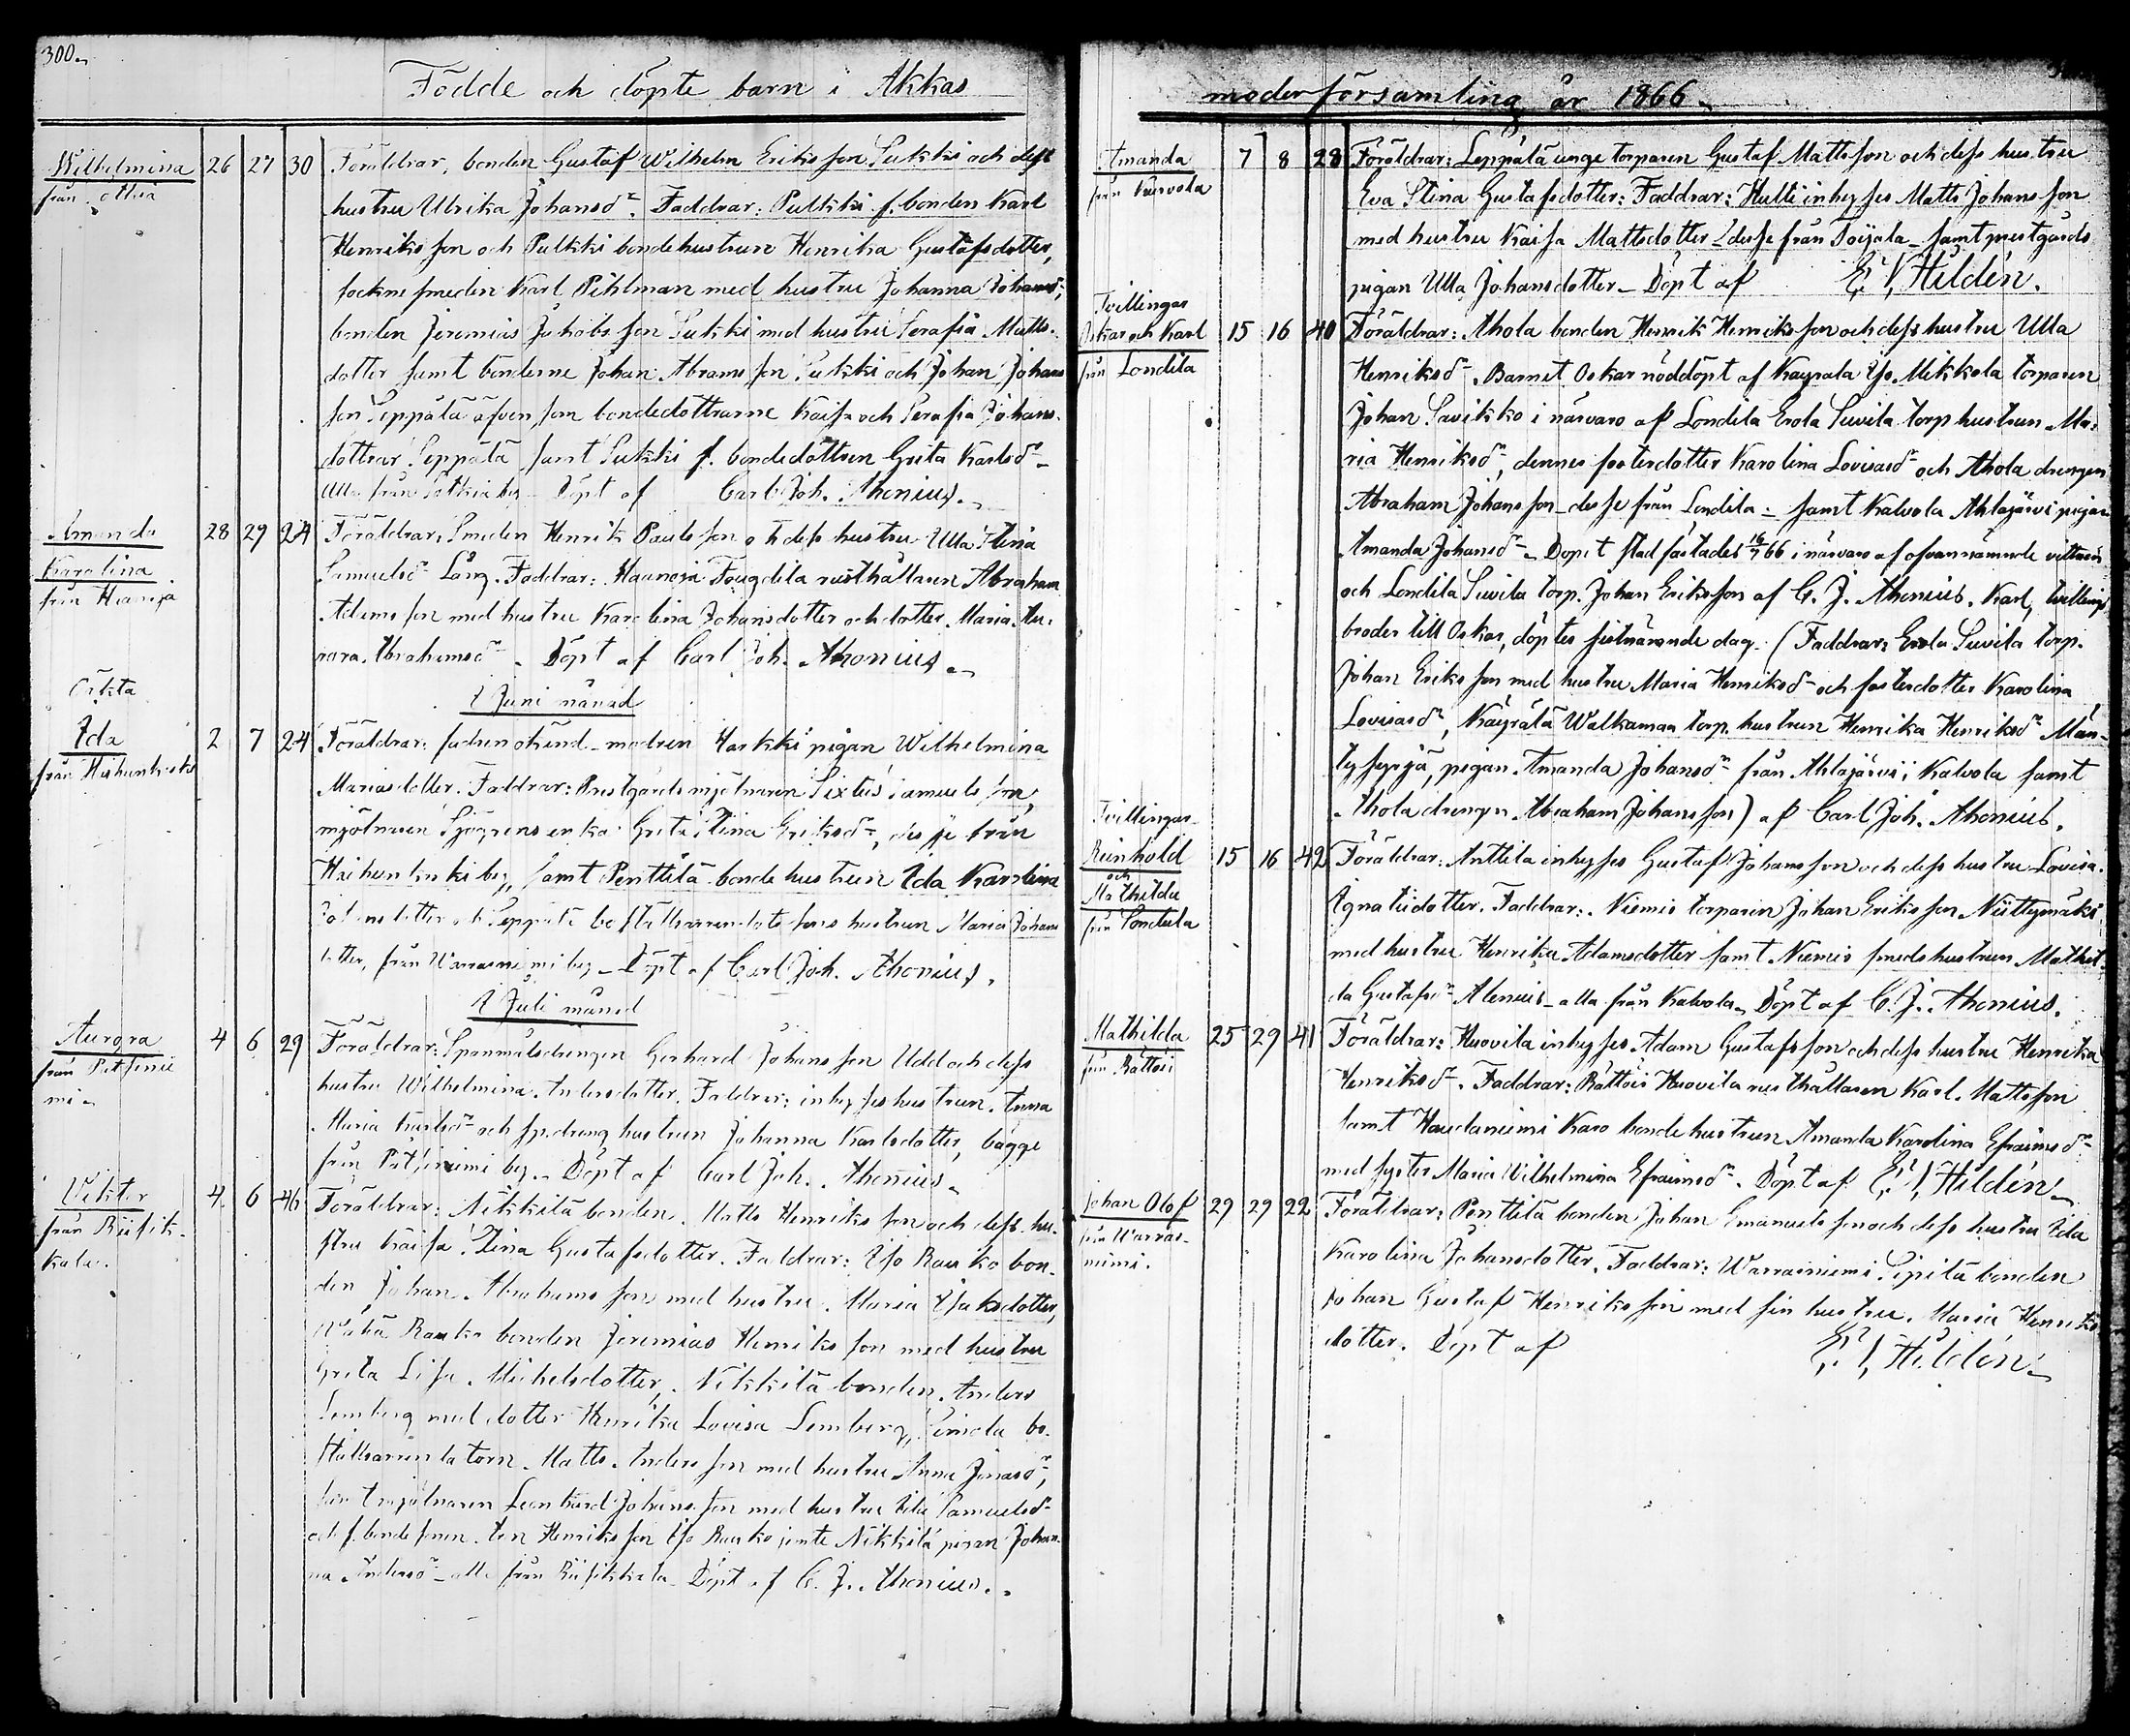 300.
Födde och döpte barn i Akkas
Wilhelmina 26 27 30 Föräldrar, bonden Gustaf Wilhelm Eriksson Sukki och dess
från
hustru Ulrika Johansdr. Faddrar: Pulkki f. bonden Karl
Henriksson och Pulkki bondehustrun Henrika Gustafsdotter,
sockne smeden Karl Pihlman med hustru Johanna Johansdr,
bonden Jeremias Jakobsson Sukki med hustru Serafia Matts-
dotter samt bönderne Johan Abramsson Sukki och Johan Johans
son Seppälä äfven som bondedöttrarne Kaisa och Serafia Johans-
döttrar Seppälä samt Sukki f. bondedottren Greta Karlsdr
alla från by Döpt af Carl Joh. Ahonius.
Amanda 28 29 24 Föräldrar, Smeden Henrik Paulsson och dess hustru Ulla Stina
Karolina
Samuelsdr Lång. Faddrar: Haanoja Tougdila rusthållaren Abraham
från Hianoja
Adamsson med hustru Karolina Johansdotter och dotter Maria Au-
rora Abrahamsdr. Döpt af Carl Joh. Ahonius.
I Juni månad
Oäkta
Ida 2 7 24 Föräldrar: fadren okänd modren Harkki pigan Wilhelmina
från
Mariasdotter. Faddrar: Prestgårds mjölnaren Sixtus Samuelsson,
mjölnaren Sjögrens enka Greta Stina Eriksdr, desse från
by, samt Penttilä bondehustrun Ida Karolina
Johansdotter och Seppälä hustrun Maria Johans
dotter, från Warrasniemi by Döpt af Carl Joh. Ahonius.
I Juli månad
Aurora 4 6 29 Föräldrar: Spanmålsdrengen Gerhard Johansson Udd och dess
från
mi
hustru Wilhelmina Andersdotter. Faddrar: inhyses hustrun Anna
Maria Karlsdr och sp.dreng hustrun Johanna Karlsdotter, bägge
från by. Döpt af Carl Joh. Ahonius.
Viktor 4 6 46 Föräldrar: Nikkilä bonden Matts Henriksson och dess hu-
från Riisik-
kala.
stru Kaisa Stina Gustafsdotter. Faddrar: Iso Rauko bon-
den Johan Abrahamsson med hustru Maria Isaksdotter,
Wähä Rauko bonden Jeremias Henriksson med hustru
Greta Lisa Michelsdotter, Nikkilä bonden Anders
Lemberg med dotter Henrika Lovisa Lemberg, Simola bo-
ställsarrendatorn Matts Andersson med hustru Anna Jonasdr,
mjölnaren Leonhard Johansson med hustru Samuelsdr
och f. bondesonen Henriksson Iso Rauko jemte Nikkilä pigan Johan-
na Andersdr alla från Riisikkala. Döpt af C. J. Ahonius.
moderförsamling år 1866.
Amanda 7 8 28 Föräldrar: Leppälä unge torparen Gustaf Mattsson och dess hustru
från Kurvola
Eva Stina Gustafsdotter: Faddrar: Hulti inhyses Matts Johansson
med hustru Kaisa Mattsdotter desse från Toijala samt prestgårds
pigan Ulla Johansdotter Döpt af Hildén.
Tvillingar
Oskar och Karl 15 16 40 Föräldrar: Ahola bonden Henrik Henriksson och dess hustru Ulla
från Londila
Henriksdr. Barnet Oskar nöddöpt af Käyrälä Yso Mikkola torparen
Johan Savikko i närvaro af Londila Erola Suvila torp hustrun Ma-
ria Henriksdr, dennes fosterdotter Karolina Lovisasdr och Ahola drengen
Abraham Johansson desse från Londila samt Kalvola Ahlajärvi pigan
Amanda Johansdr. Dopet stadfästades 16/7 66 i närvaro af ofvannämnde vittnen
och Londila Suvila torp. Johan Eriksson af C. J. Ahonius. Karl, tvillings
broder till Oskar, döptes sistnämnde dag. (Faddrar: Erola Suvila torp.
Johan Eriksson med hustru Maria Henriksdr och fosterdotter Karolina
Lovisasdr, Käyrälä Walkaman torp. hustrun Henrika Henriksdr Män-
tysyrjä, pigan Amanda Johansdr från Ahlajärvi i Kalvola samt
Ahola drengen Abraham Johansson) af Carl Joh. Ahonius.
Tvillingar
Reinhold 15 16 42 Föräldrar: Anttila inhyses Gustaf Johansson och dess hustru Lovisa
och
Mathilda
från Sontula
Ignatiidotter. Faddrar: Niemis torparen Johan Eriksson Niittymäki
med hustru Henrika Adamsdotter samt Niemis smedshustrun Mathil-
da Gustafsdr Alenius alla från Kalvola. Döpt af C. J. Ahonius.
Mathilda 25 29 41 Föräldrar: Huovila inhyses Adam Gustafsson och dess hustru Henrika
från Rättöi
Henriksdr. Faddrar: Rättöis Huovila rusthållaren Karl Mattsson
samt Haudaniemi Karo bondehustrun Amanda Karolina Efraimsdr
med syster Maria Wilhelmina Efraimsdr. Döpt af Hildén
Johan Olof 29 29 22 Föräldrar: Penttilä bonden Johan Emanuelsson och dess hustru Ida
från Warras-
niemi.
Karolina Johansdotter. Faddrar: Warrasniemi Sipilä bonden
Johan Gustaf Henriksson med sin hustru Maria Henriks
dotter. Döpt af Hildén